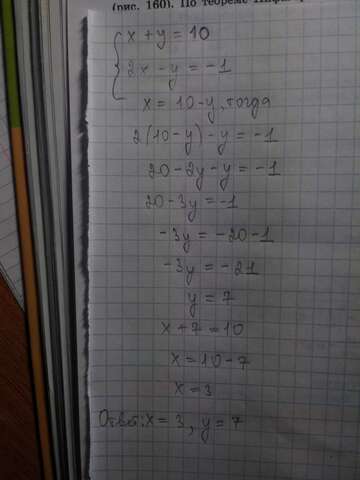 (рис. 160). По теореме
x + y = 10
2x - y = -1
x = 10 - y, тогда
2(10 - y) - y = -1
20 - 2y - y = -1
20 - 3y = -1
-3y = -20 - 1
-3y = -21
y = 7
x + 7 = 10
x = 10 - 7
x = 3
Ответ: x = 3, y = 7